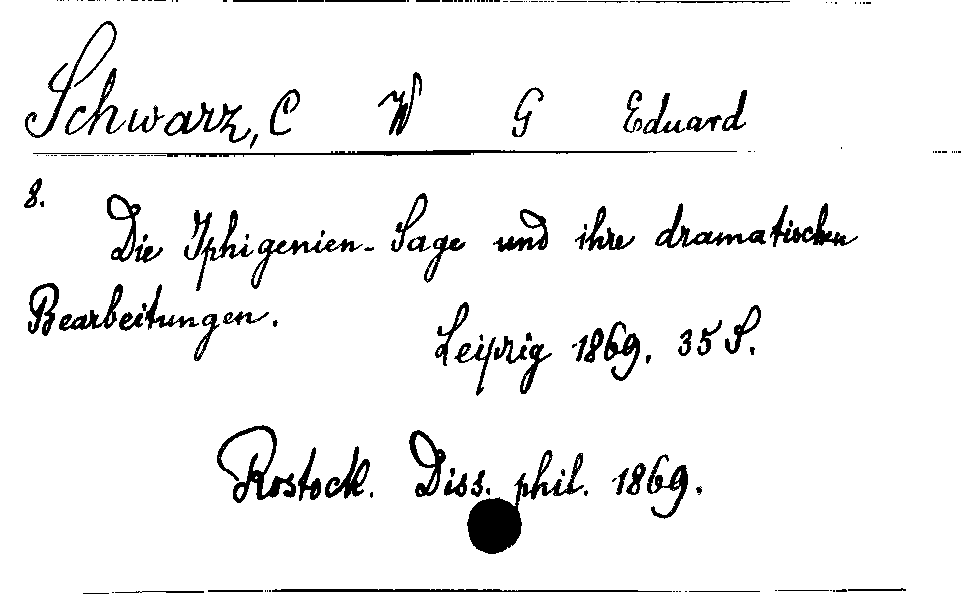 Schwarz, C W G Eduard
8.
Die Iphigenien-Sage und ihre dramatischen
Bearbeitungen.
Leipzig 1869. 35 S.
Rostock. Diss. phil. 1869.